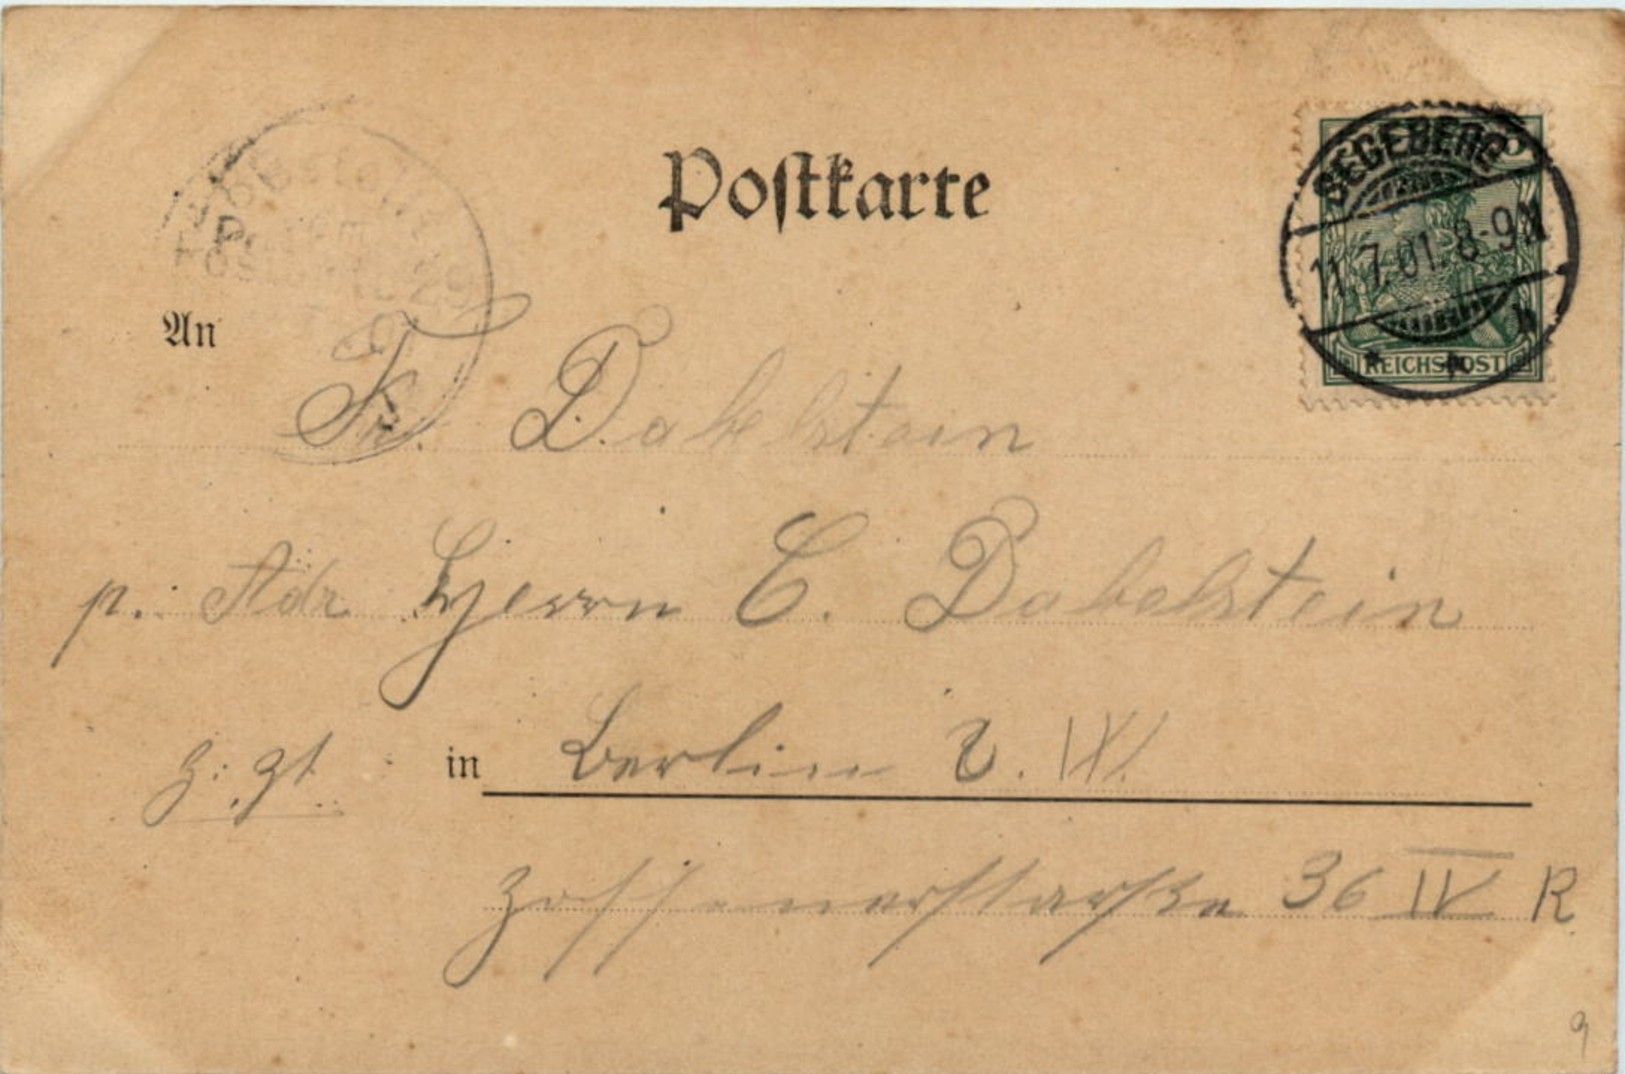 Postkarte
SEGEBERG
11.7.01.8-9N
REICHSPOST
An
Fr. Dabelstein
p. Adr Herrn C. Dabelstein
z. Zt in Berlin S. W.
Zossenerstarße 36 IV R
9